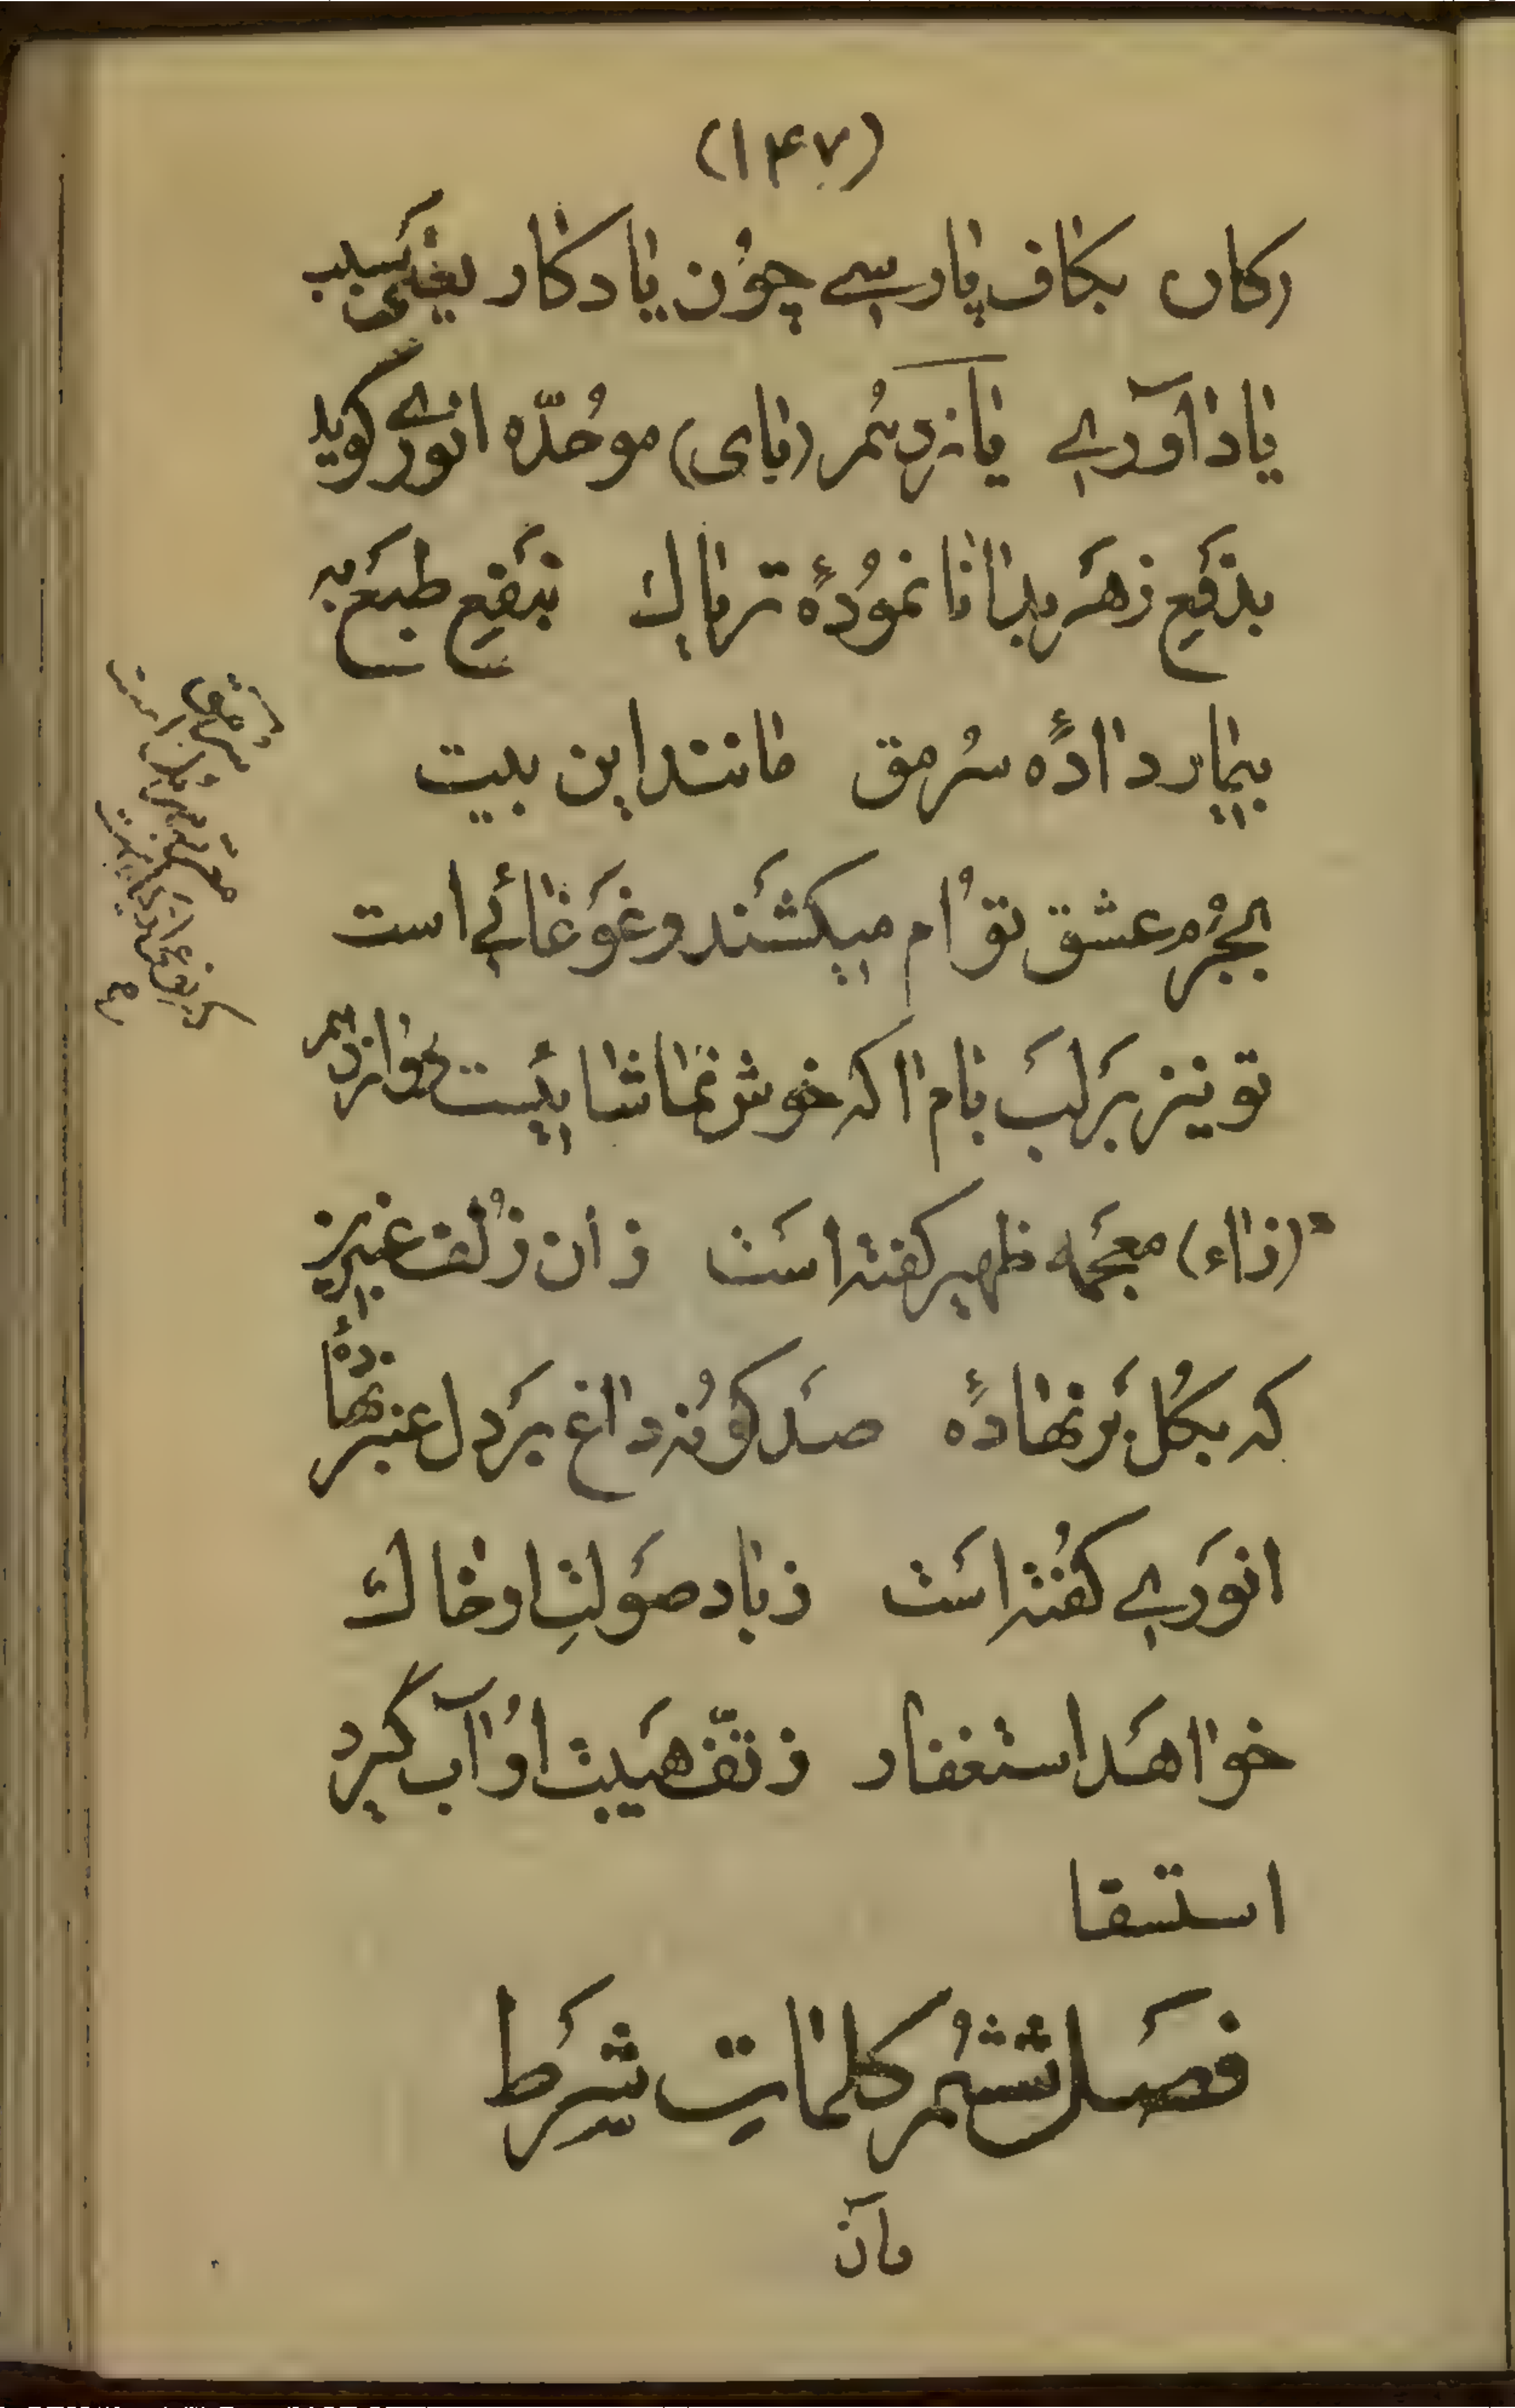 (۱۴۷)
رکان بکاف پارسے چوُن یادکار یغنی بسبب
یاد آوَرے یانزدهُم (بای) موحُدّه انورے کوید
بدَفعِ زهَر بدانا نموُدهٔ تریاك بنَفعِ طبَع به
بیمار دادهٔ سُرمق مانند این بیت
بجُرم عشق توُام میکشَند و غَوغائے است
تو نیز برَ لبَ بام ا که خوش تماشا ئیست
(زاء) معجَمه ظهیر کفته اسَت ز ان زُلف عنبریز
که بکُل بَر نهادهٔ صَد کوُنه داغ برَ دل عنبر نهادهٔ
انوَرے کفُته اسَت ز باد صَولتِ او خاك
خواهَد استغفار ز تفّ هیَبت اوُ آب گیرد
استسقا
فصَل ششُم کلماتِ شَرط
مآن